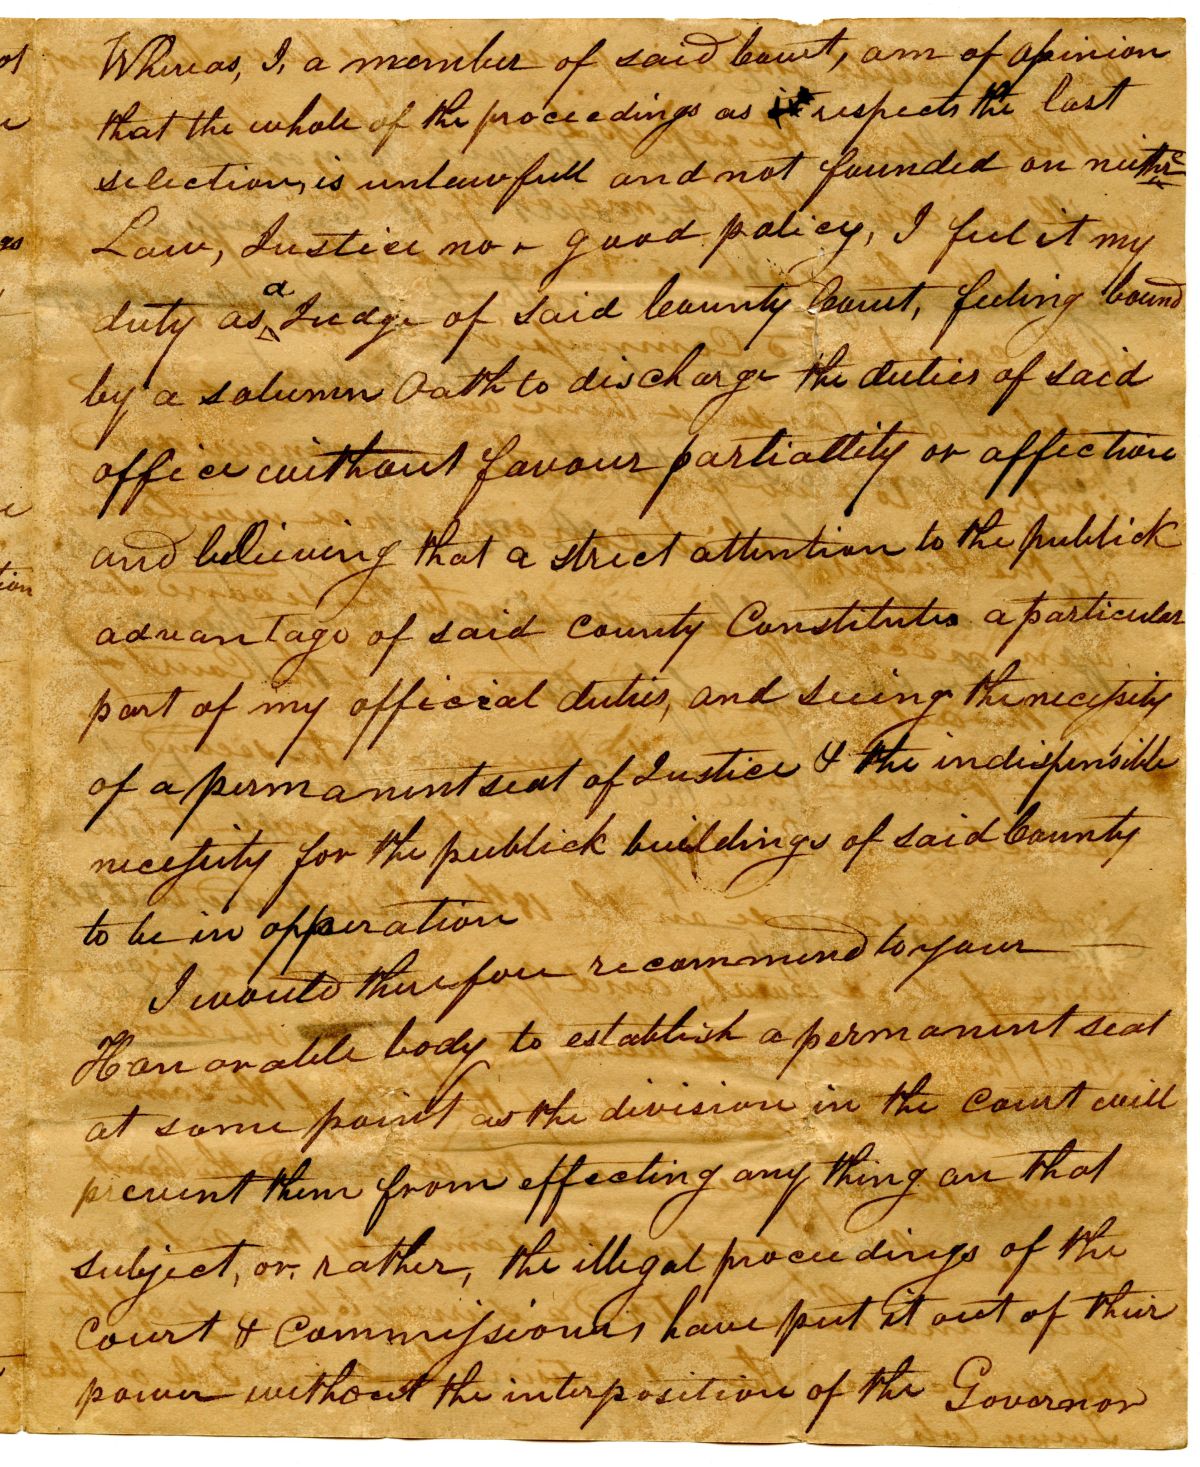 Whereas, I, a member of said Court, am of opinion
that the whole of the proceedings as it respects the last
selection, is unlawfull and not founded on neither
Law, Justice nor good policy, I feel it my
duty as a Judge of said County Court, feeling bound
by a solumn Oath to discharge the duties of said
office without favour partiallity or affection
and believing that a strict attention to the publick
advantage of said County Constitutes a particular
part of my official duties, and seeing the necessity
of a permanent seat of Justice & the indispensible
necessity for the publick buildings of said County
to be in opperation
I would therefore recommend to your
Honorable body to establish a permanent seat
at some point as the division in the Court will
prevent them from effecting any thing on that
subject, or, rather, the illegal proceedings of the
Court & Commissioners have put it out of their
power without the interposition of the Governor